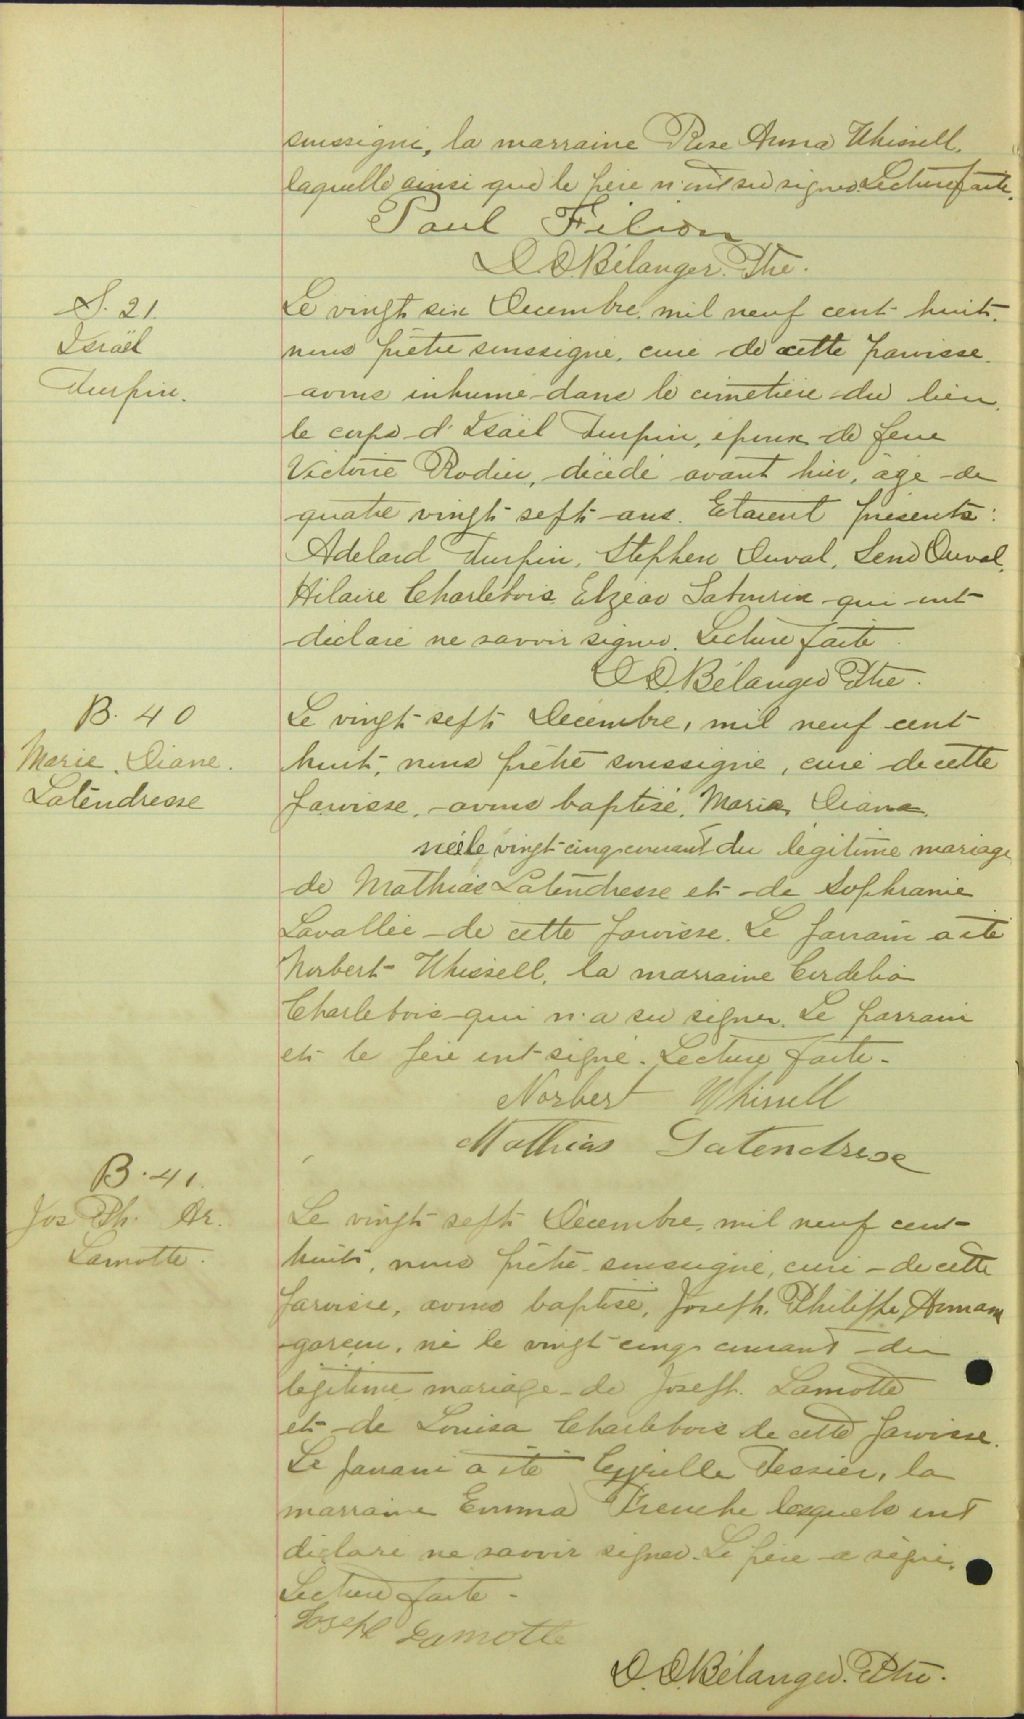 soussigné, la marraine Rose Anna Whissell,
laquelle ainsi que le père n'ont su signer Lecture faite.
Paul Filion
D. D. Bélanger. Ptre.
S. 21.
Israël
Turpin.
Le vingt six Decembre, mil neuf cent huit,
nous prêtre soussigné, curé de cette paroisse
avons inhumé dans le cimetière du lieu,
le corps d'Isaël Turpin, époux de feue
Victoire Rodier, décédé avant hier, âgé de
quatre vingt sept ans. Etaient présents:
Adelard Turpin, Stephen Duval, Duval,
Hilaire Charlebois, Elzéar qui ont
déclaré ne savoir signer. Lecture faite.
D. D. Bélanger Ptre.
B. 40
Marie Diane
Latendresse
Le vingt sept Décembre, mil neuf cent
huit, nous prêtre soussigné, curé de cette
paroisse, avons baptisé, Marie, Diana,
née le vingt-cinq courant du légitime mariage
de Mathias Latendresse et de Sophranie
Lavallée de cette paroisse. Le parrain a été
Norbert Whissell, la marraine Cordelia
Charlebois qui n'a su signer. Le parrain
et le père ont signé. Lecture faite.
Norbert Whissell
Mathias Latendresse
B. 41.
Jos Ph. Ar.
Lamotte.
Le vingt sept Décembre, mil neuf cent
huit, nous prêtre soussigné, curé de cette
paroisse, avons baptisé, Joseph, Philippe,
garçon, né le vingt cinq courant du
légitime mariage de Joseph Lamotte
et de Louisa Charlebois de cette paroisse.
Le parrain a été Cyrille Tessier, la
marraine Emma lesquels ont
déclaré ne savoir signer. Le père a signé.
Lecture faite.
Joseph Lamotte
D. D. Bélanger. Ptre.